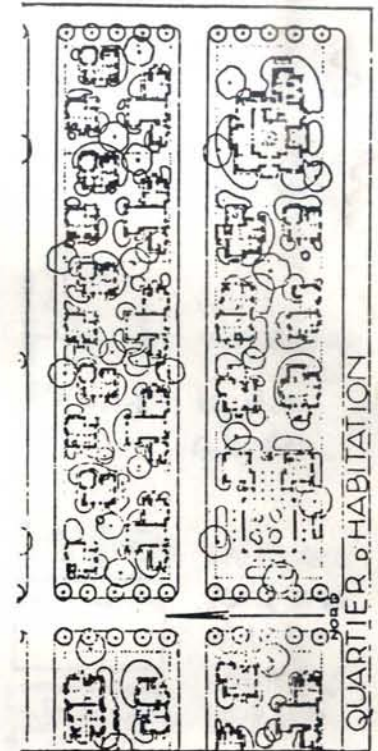 QUARTIER D HABITATION
NORD